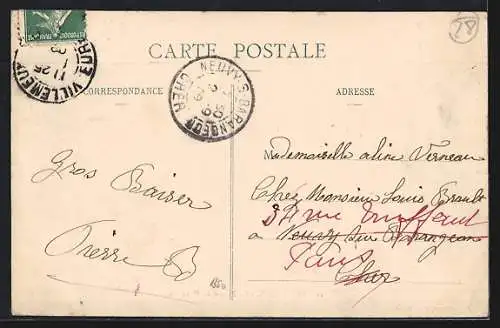 CARTE POSTALE
CORRESPONDANCE
ADRESSE
VILLEMEUX
NEUVY-S-BARANGEON
CHER
Gros Baiser
Pierre B
Mademoiselle Aline Verneau
Chez Monsieur Louis
34 rue
a Neuvy sur Barangeon
Paris
Cher
18